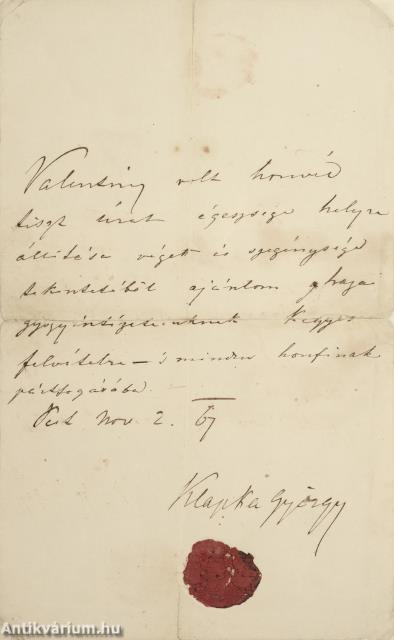 Valentiny volt honvéd
tiszt urat egészsége helyre
állitása végett és szegénysége
tekintetéből ajánlom haza
gyógyintézeteinknek kegyes
felvételre – s minden honfinak
pártfogásába.
Pest Nov. 2. 67
Klapka György
Antikvárium.hu